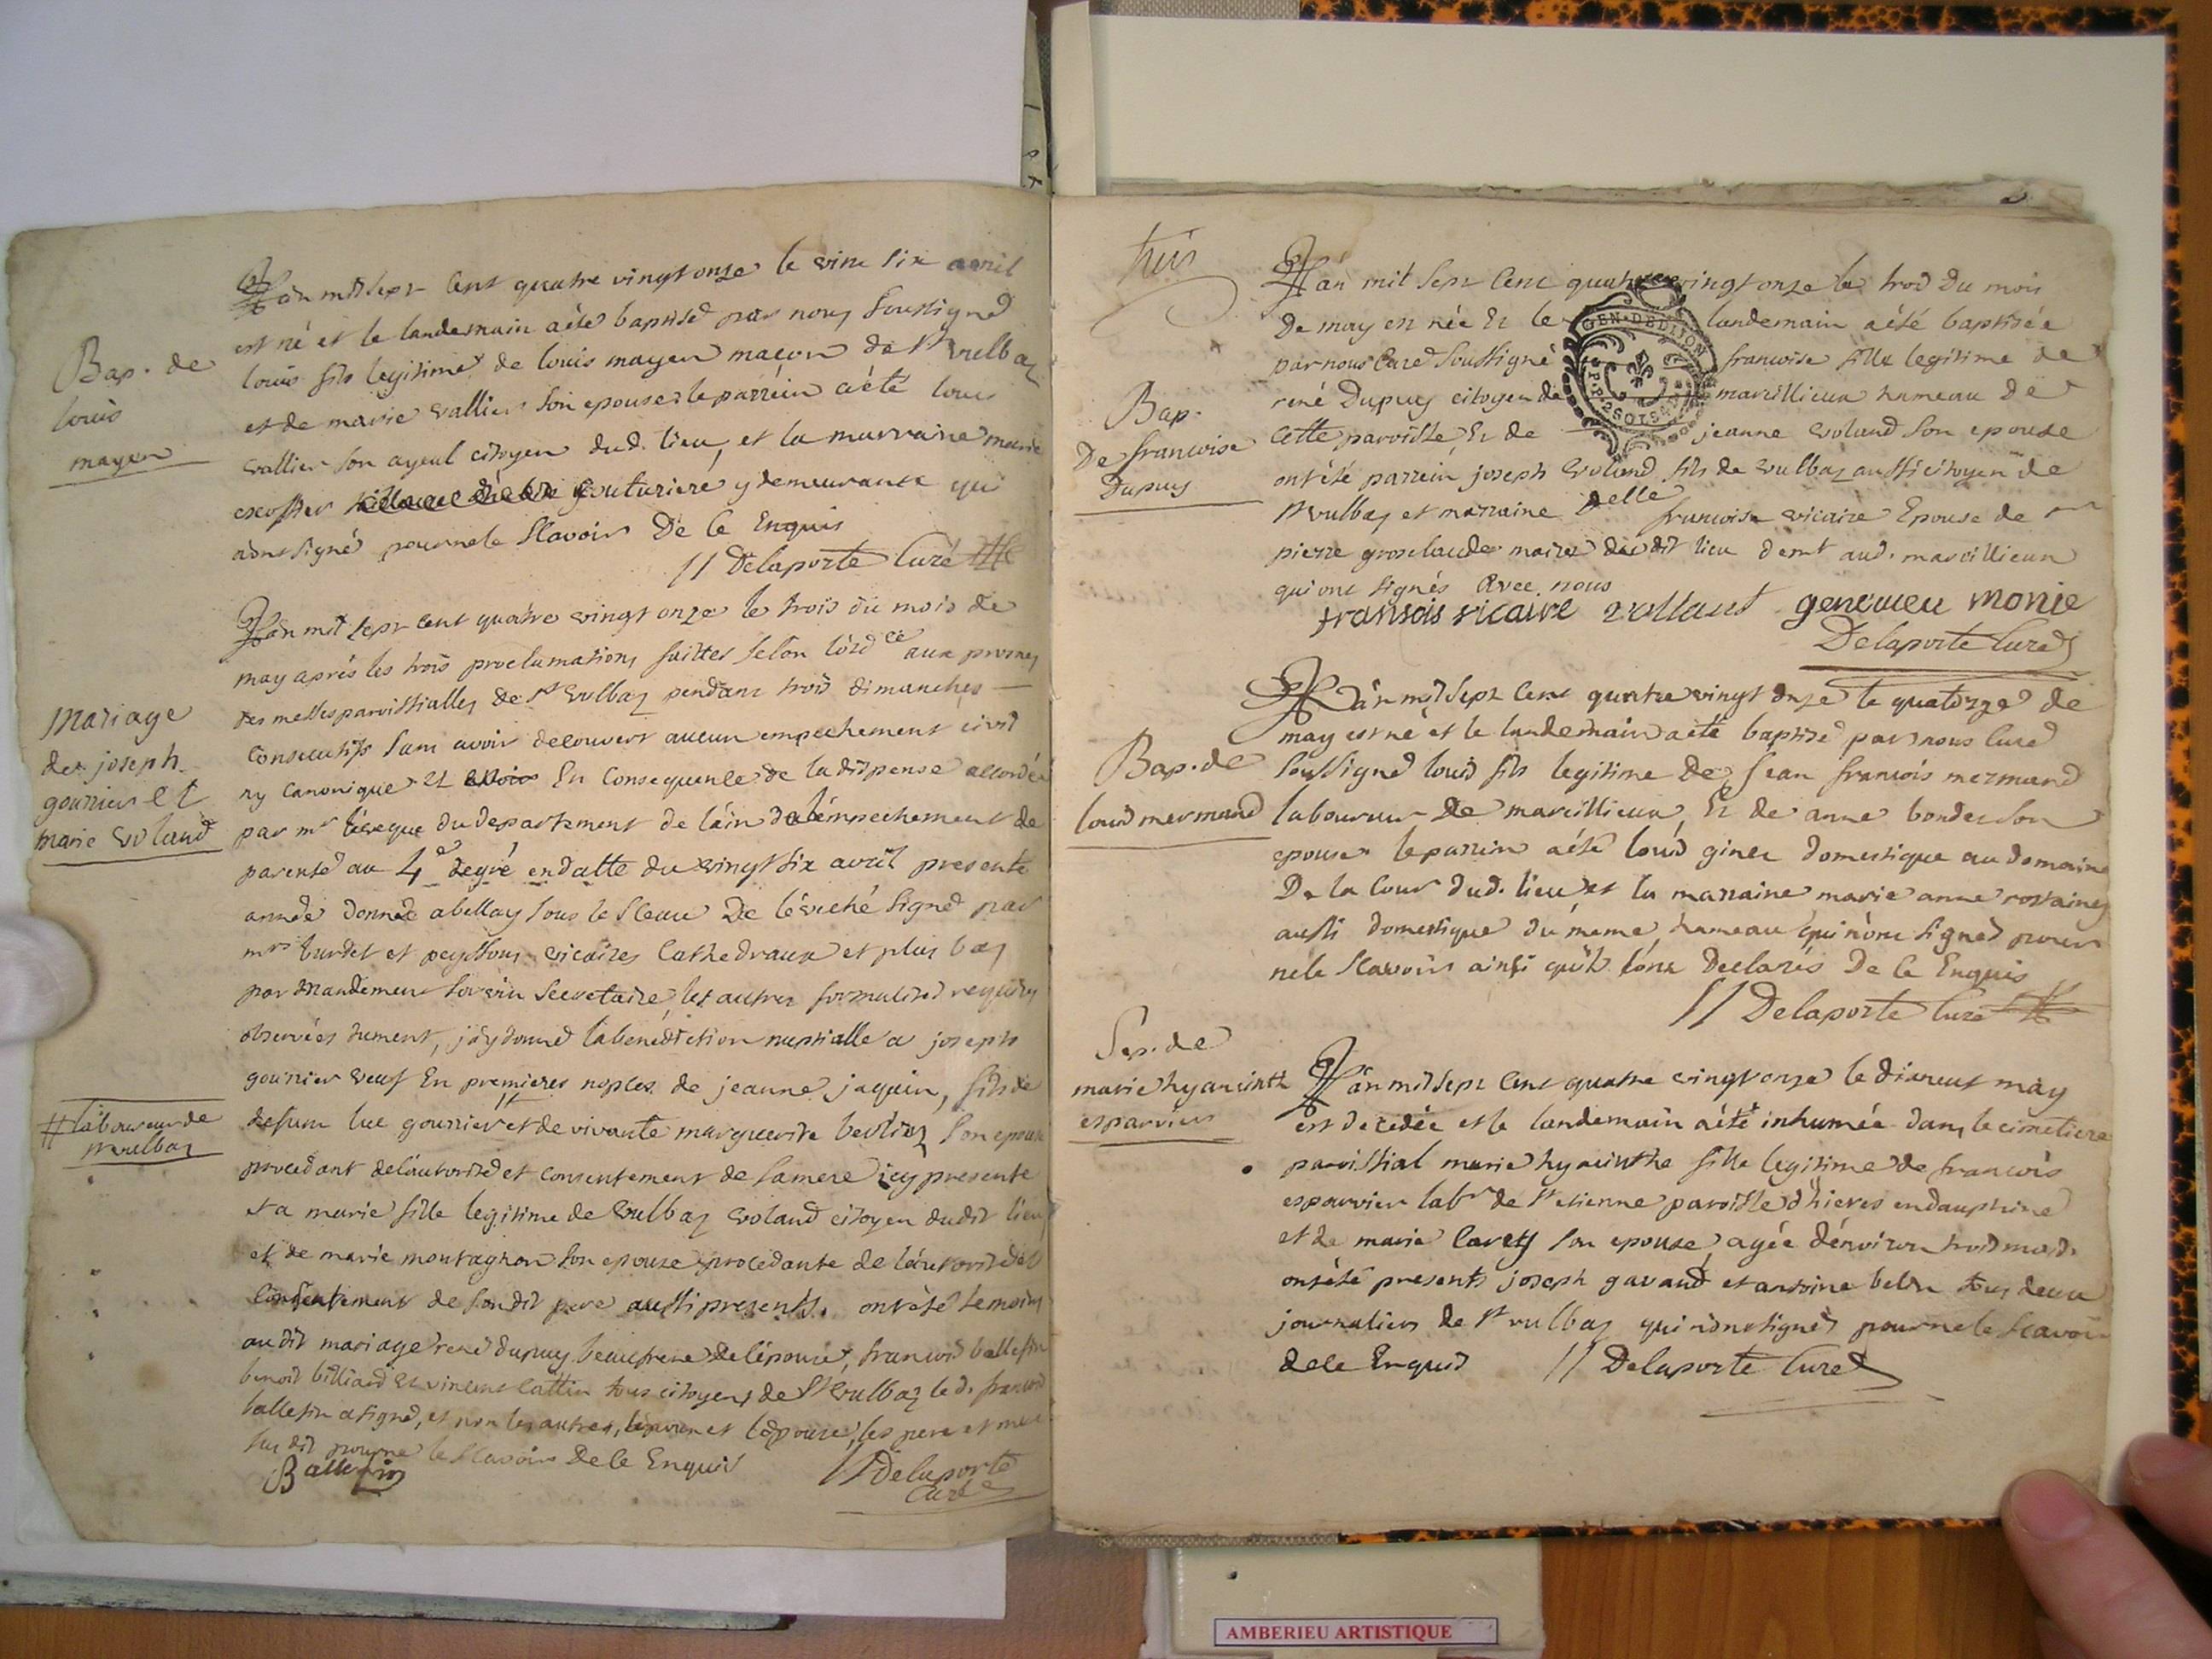 Bap. de
louis
mayen
L'an mil sept cent quatre vingt onze le vint six avril
est né et le landemain a été baptisé par nous soussigné
louis fils legitime de louis mayen maçon de St vulbaz
et de marie vallier son epouse le parrein a été louis
vallier son ayeul citoyen dud. lieu, et la marraine marie
couturiere y demeurante qui
n'ont signé pour ne le sçavoir De ce Enquis
// Delaporte Curé
Mariage
de joseph
gounier et
marie voland
L'an mil sept cent quatre vingt onze le trois du mois de
may aprés les trois proclamations faittes selon l'ord.ce aux prones
des messes paroissialles de St vulbaz pendant trois dimanches
consecutifs sans avoir decouvert aucun empechement civil
ny canonique et En consequence de la dispense accordée
par mr l'évèque du departement de l'ain de l'émpechement de
parenté au 4e degré en datte du vingt six avril presente
année donnée a bellay sous le sceau De l'éveché signé par
mrs burdet et peyssous vicaires Cathedraux et plus bas
par mandement secretaire, les autres formalités requises
observées dument, j'ay donné la bénédiction nuptialle a joseph
gounier veuf En premieres noples de jeanne jaquin, fils de
defunt luc gounier # et de vivante marguerite son epouse
# laboureur de
St vulbaz
procedant de l'autorité et consentement de sa mere icy presente
et a marie fille legitime de vulbaz voland citoyen dudit lieu
et de marie montagnon son epouse procedante de l'autorité et
consentement de son dit pere aussi present. ont été temoins
au dit mariage rené dupuy beaufrere de l'épouse, francois ballefin
benoit billiard et vincent cattin tous citoyens de St vulbaz le d. francois
ballefin a signé, et non les autres, l'epoux et l'épouse, les pere et mere
sus dit pour ne le sçavoir De ce Enquis
Ballefin // Delaporte
Curé
trois
Bap.
De francoise
Dupuy
L'an mil sept cent quatre vingt onze le trois du mois
De may est née Et le landemain a été baptisée
par nous Curé soussigné francoise fille legitime de
rené Dupuy citoyen de marcillieux hameau de
cette paroisse Et de jeanne voland son epouse
ont été parrein joseph voland fils de vulbaz aussi citoyen de
St vulbaz et marraine delle francoise vicaire Epouse de
pierre grosclaude maire du dit lieu demt aud. marcillieux
qui ont signés avec nous
GEN. DE DIJON
2 SOLS
fransois vicaire vollant genevieu monie
Delaporte Curé
Bap. de
louis mermand
L'an mil sept cent quatre vingt onze le quatorze de
may est né et le landemain a été baptisé par nous Curé
soussigné louis fils legitime de jean francois mermand
laboureur De marcillieux, Et de anne bonder son
epouse le parrin a été louis ginet domestique au domaine
De la Cour dud. lieu et la marraine marie anne rostaing
aussi domestique du méme hameau qui n'ont signés pour
ne le sçavoir ainsi qu'ils l'ont declarés De ce Enquis
// Delaporte Curé
Sep. de
marie hyacinthe
esparvier
L'an mil sept cent quatre vingt onze le dixneuf may
est decedée et le landemain a été inhumée dans le cimetiere
paroissial marie hyacinthe fille legitime de francois
esparvier labr de St etienne paroisse d'hieres en dauphiné
et de marie son epouse, agée d'énviron trois mois.
ont été presents joseph gavand et antoine tous deux
journaliers de St vulbaz qui n'ont signés pour ne le sçavoir
de ce Enquis // Delaporte Curé
AMBERIEU ARTISTIQUE